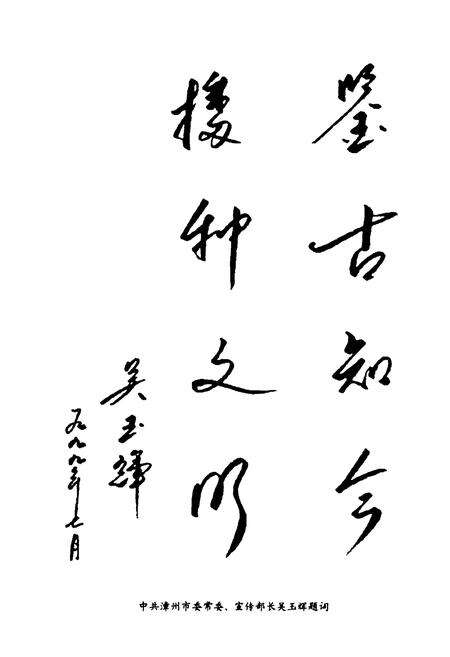 鉴古知今
播种文明
吴玉辉
一九九九年七月
中共漳州市委常委、宣传部长吴玉辉题词